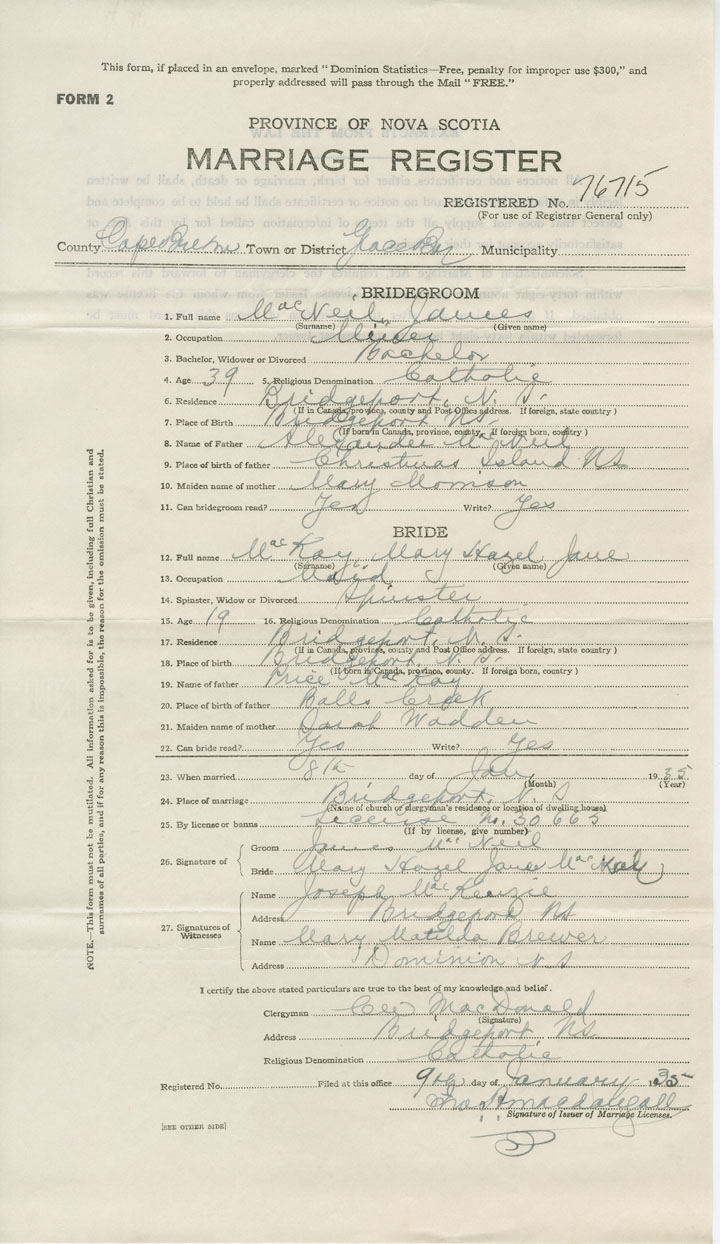 This form, if placed in an envelope, marked "Dominion Statistics—Free, penalty for improper use $300," and
properly addressed will pass through the Mail "FREE."
FORM 2
PROVINCE OF NOVA SCOTIA
MARRIAGE REGISTER
REGISTERED No. 76715
(For use of Registrar General only)
County Cape Breton Town or District Glace Bay Municipality
BRIDEGROOM
1. Full name MacNeil, James
(Surname) (Given name)
2. Occupation Miner
3. Bachelor, Widower or Divorced Bachelor
4. Age 39 5. Religious Denomination Catholic
6. Residence Bridgeport, N. S.
(If in Canada, province, county and Post Office address. If foreign, state country)
7. Place of Birth Bridgeport NS.
(If born in Canada, province, county. If foreign born, country)
8. Name of Father Alexander McNeil
9. Place of birth of father Christmas Island NS
10. Maiden name of mother Mary Morrison
11. Can bridegroom read? Yes Write? Yes
BRIDE
12. Full name MacKay, Mary Hazel Jane
(Surname) (Given name)
13. Occupation Maid
14. Spinster, Widow or Divorced Spinster
15. Age 19 16. Religious Denomination Catholic
17. Residence Bridgeport, N. S.
(If in Canada, province, county and Post Office address. If foreign, state country)
18. Place of birth Bridgeport, N. S.
(If born in Canada, province, county. If foreign born, country)
19. Name of father Price MacKay
20. Place of birth of father Balls Creek
21. Maiden name of mother Sarah Wadden
22. Can bride read? Yes Write? Yes
23. When married 8th day of Jan. 1935
(Month) (Year)
24. Place of marriage Bridgeport, N. S
(Name of church or clergyman's residence or location of dwelling house)
25. By license or banns License No. 30663
(If by license, give number)
26. Signature of Groom James MacNeil
Bride Mary Hazel Jane MacKay
27. Signatures of Witnesses
Name Joseph MacKenzie
Address Bridgeport NS
Name Mary Matilda Brewer
Address Dominion N S
I certify the above stated particulars are true to the best of my knowledge and belief.
Clergyman MacDonald
(Signature)
Address Bridgeport NS
Religious Denomination Catholic
Registered No. Filed at this office 9th day of January 1935
Macdougall
Signature of Issuer of Marriage Licenses.
[SEE OTHER SIDE]
NOTE.—This form must not be mutilated. All information asked for is to be given, including full Christian and
surnames of all parties, and if for any reason this is impossible, the reason for the omission must be stated.